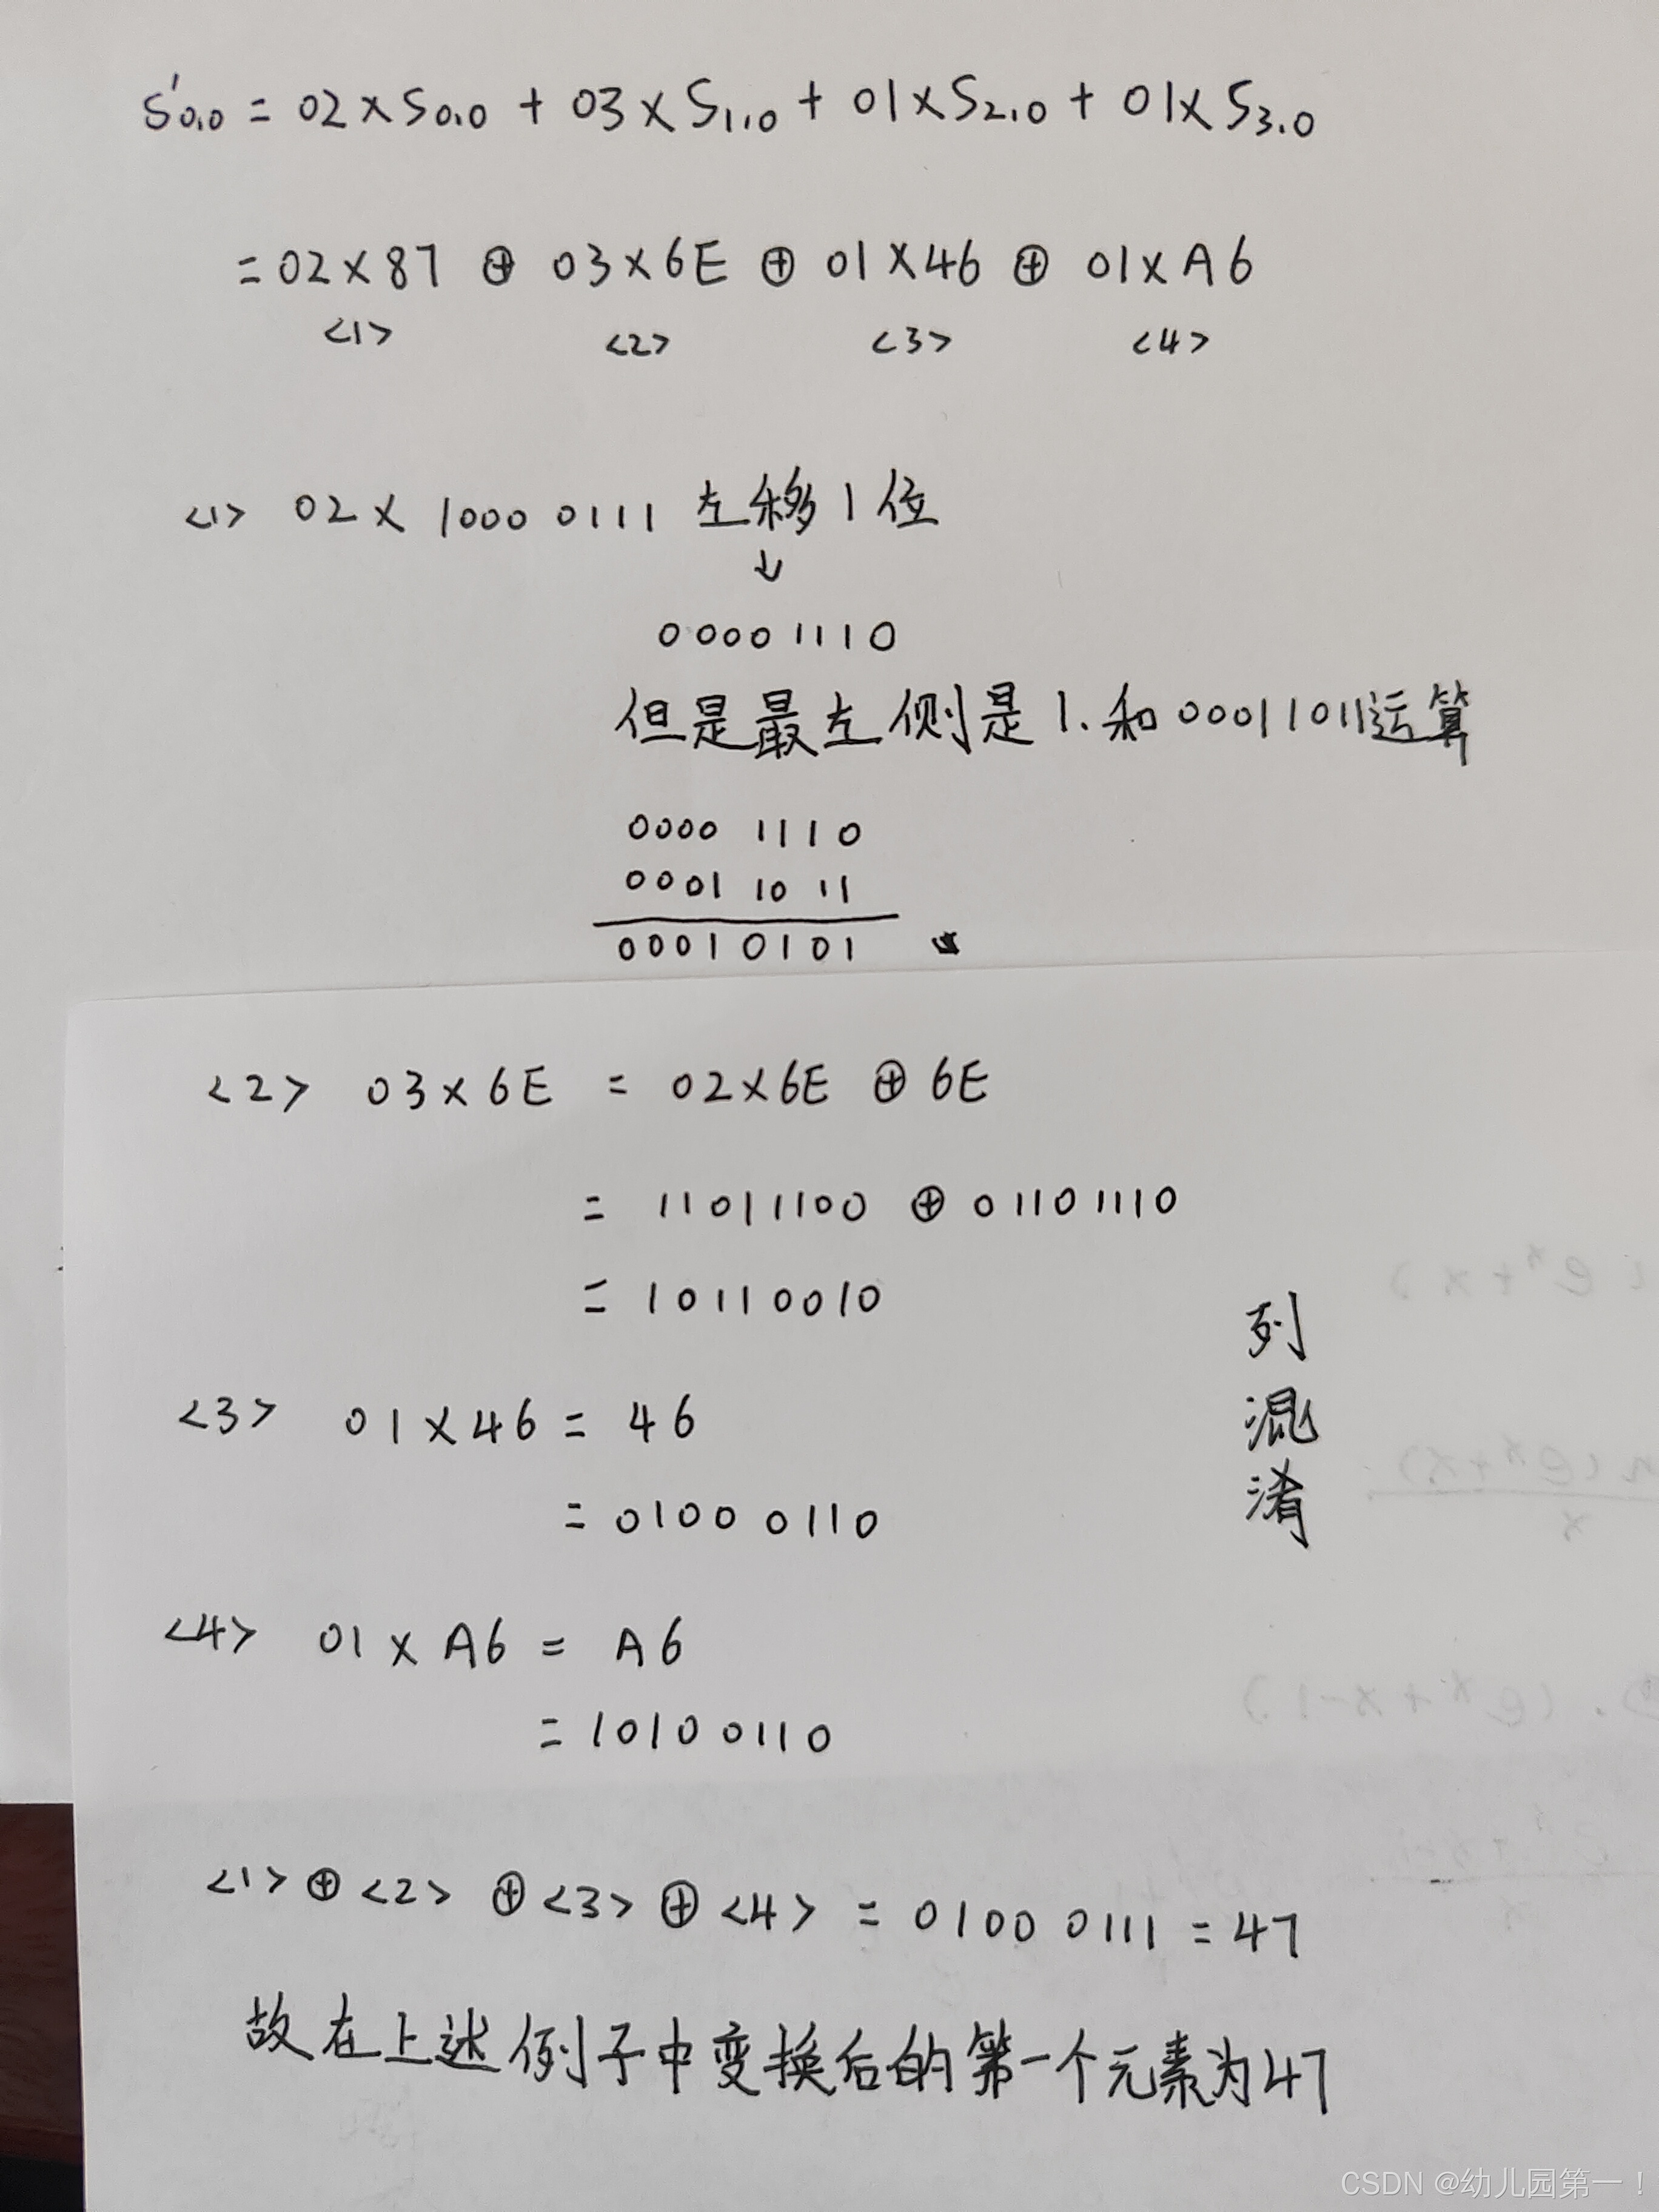 S'0,0 = 02×S0,0 + 03×S1,0 + 01×S2,0 + 01×S3,0
=02×87 ⊕ 03×6E ⊕ 01×46 ⊕ 01×A6
<1> <2> <3> <4>
<1> 02× 1000 0111 左移1位
↓
0000 1110
但是最左侧是1.和00011011运算
0000 1110
0001 1011
00010101
<2> 03×6E = 02×6E ⊕ 6E
= 11011100 ⊕ 01101110
= 10110010
<3> 01×46 = 46
= 0100 0110
<4> 01×A6 = A6
= 1010 0110
列
混
淆
<1>⊕<2> ⊕<3>⊕<4> = 0100 0111 = 47
故在上述例子中变换后的第一个元素为47
CSDN @幼儿园第一！